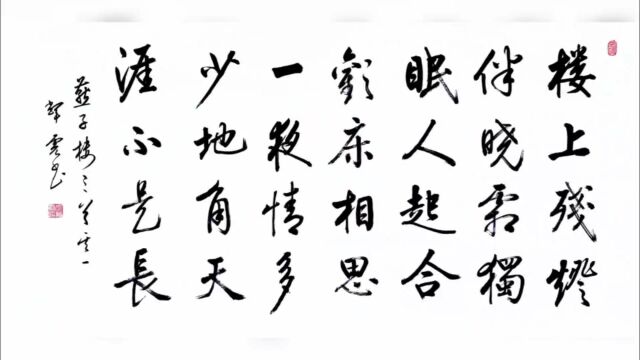 楼上残燈
伴晓霜獨
眠人起合
歡床相思
一夜情多
少地角天
涯不是長
燕子楼三首其一
雲书